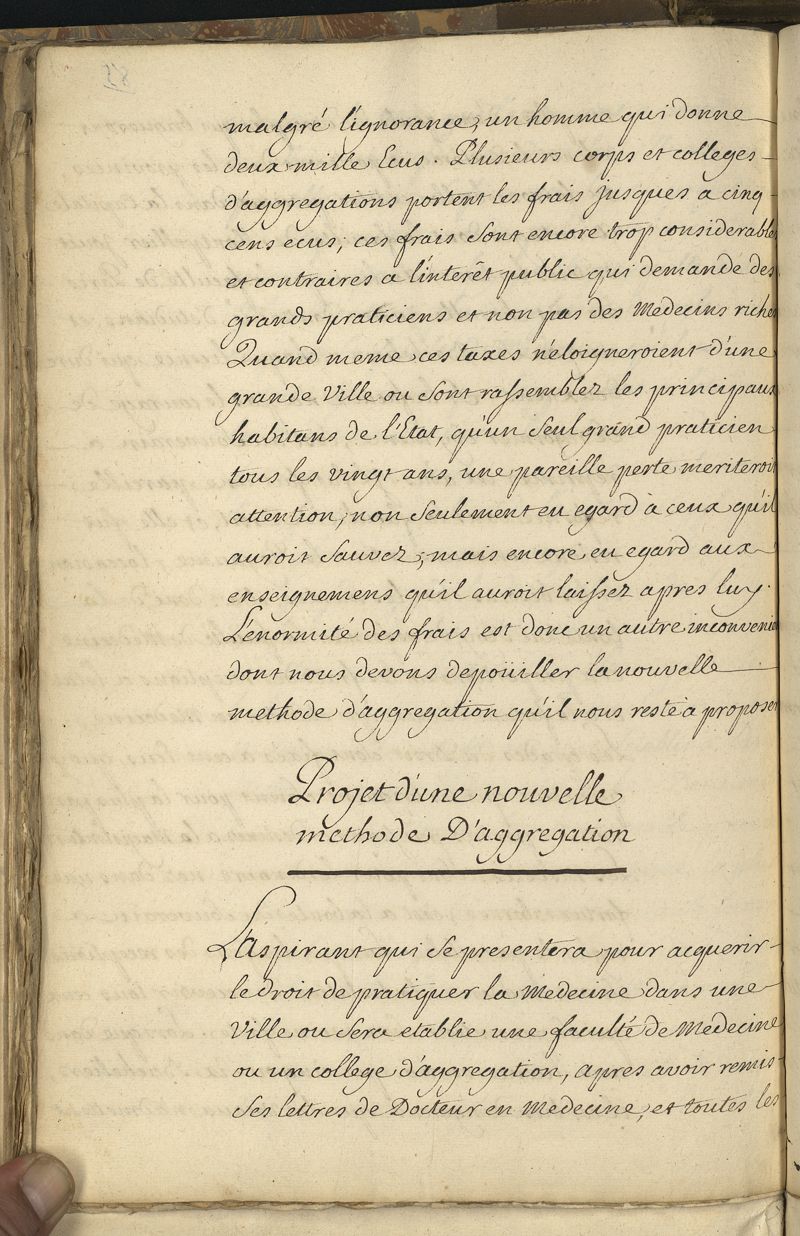 58
malgré l'ignorance, un homme qui donne
deux mille Ecus. Plusieurs corps et colleges
d'aggregations portent les frais jusques a cinq
cens ecus; ces frais sont encore trop considerables
et contraires a l'interêt public qui demande des
grands praticiens et non pas des Medecins riches
Quand meme ces taxes n'eloigneroient d'une
grande Ville ou sont rassemblez les principaux
habitans de l'Etat, qu'un seul grand praticien
tous les vingt ans, une pareille perte meriteroit
attention, non seulement eu egard à ceux qu'il
auroit sauvez, mais encore eu egard aux
enseignemens qu'il auroit laissez apres luy.
L'énormité des frais est donc un autre inconvenie
dont nous devons depoüiller la nouvelle
methode d'aggregation qu'il nous reste à proposer
Projet d'une nouvelle
methode D'aggregation
L'aspirant qui se presentera pour acquerir
le droit de pratiquer la Medecine dans une
Ville ou sera etablie une faculté de Médecine
ou un college d'aggregation, apres avoir remis
ses lettres de Docteur en Medecine, et toutes les